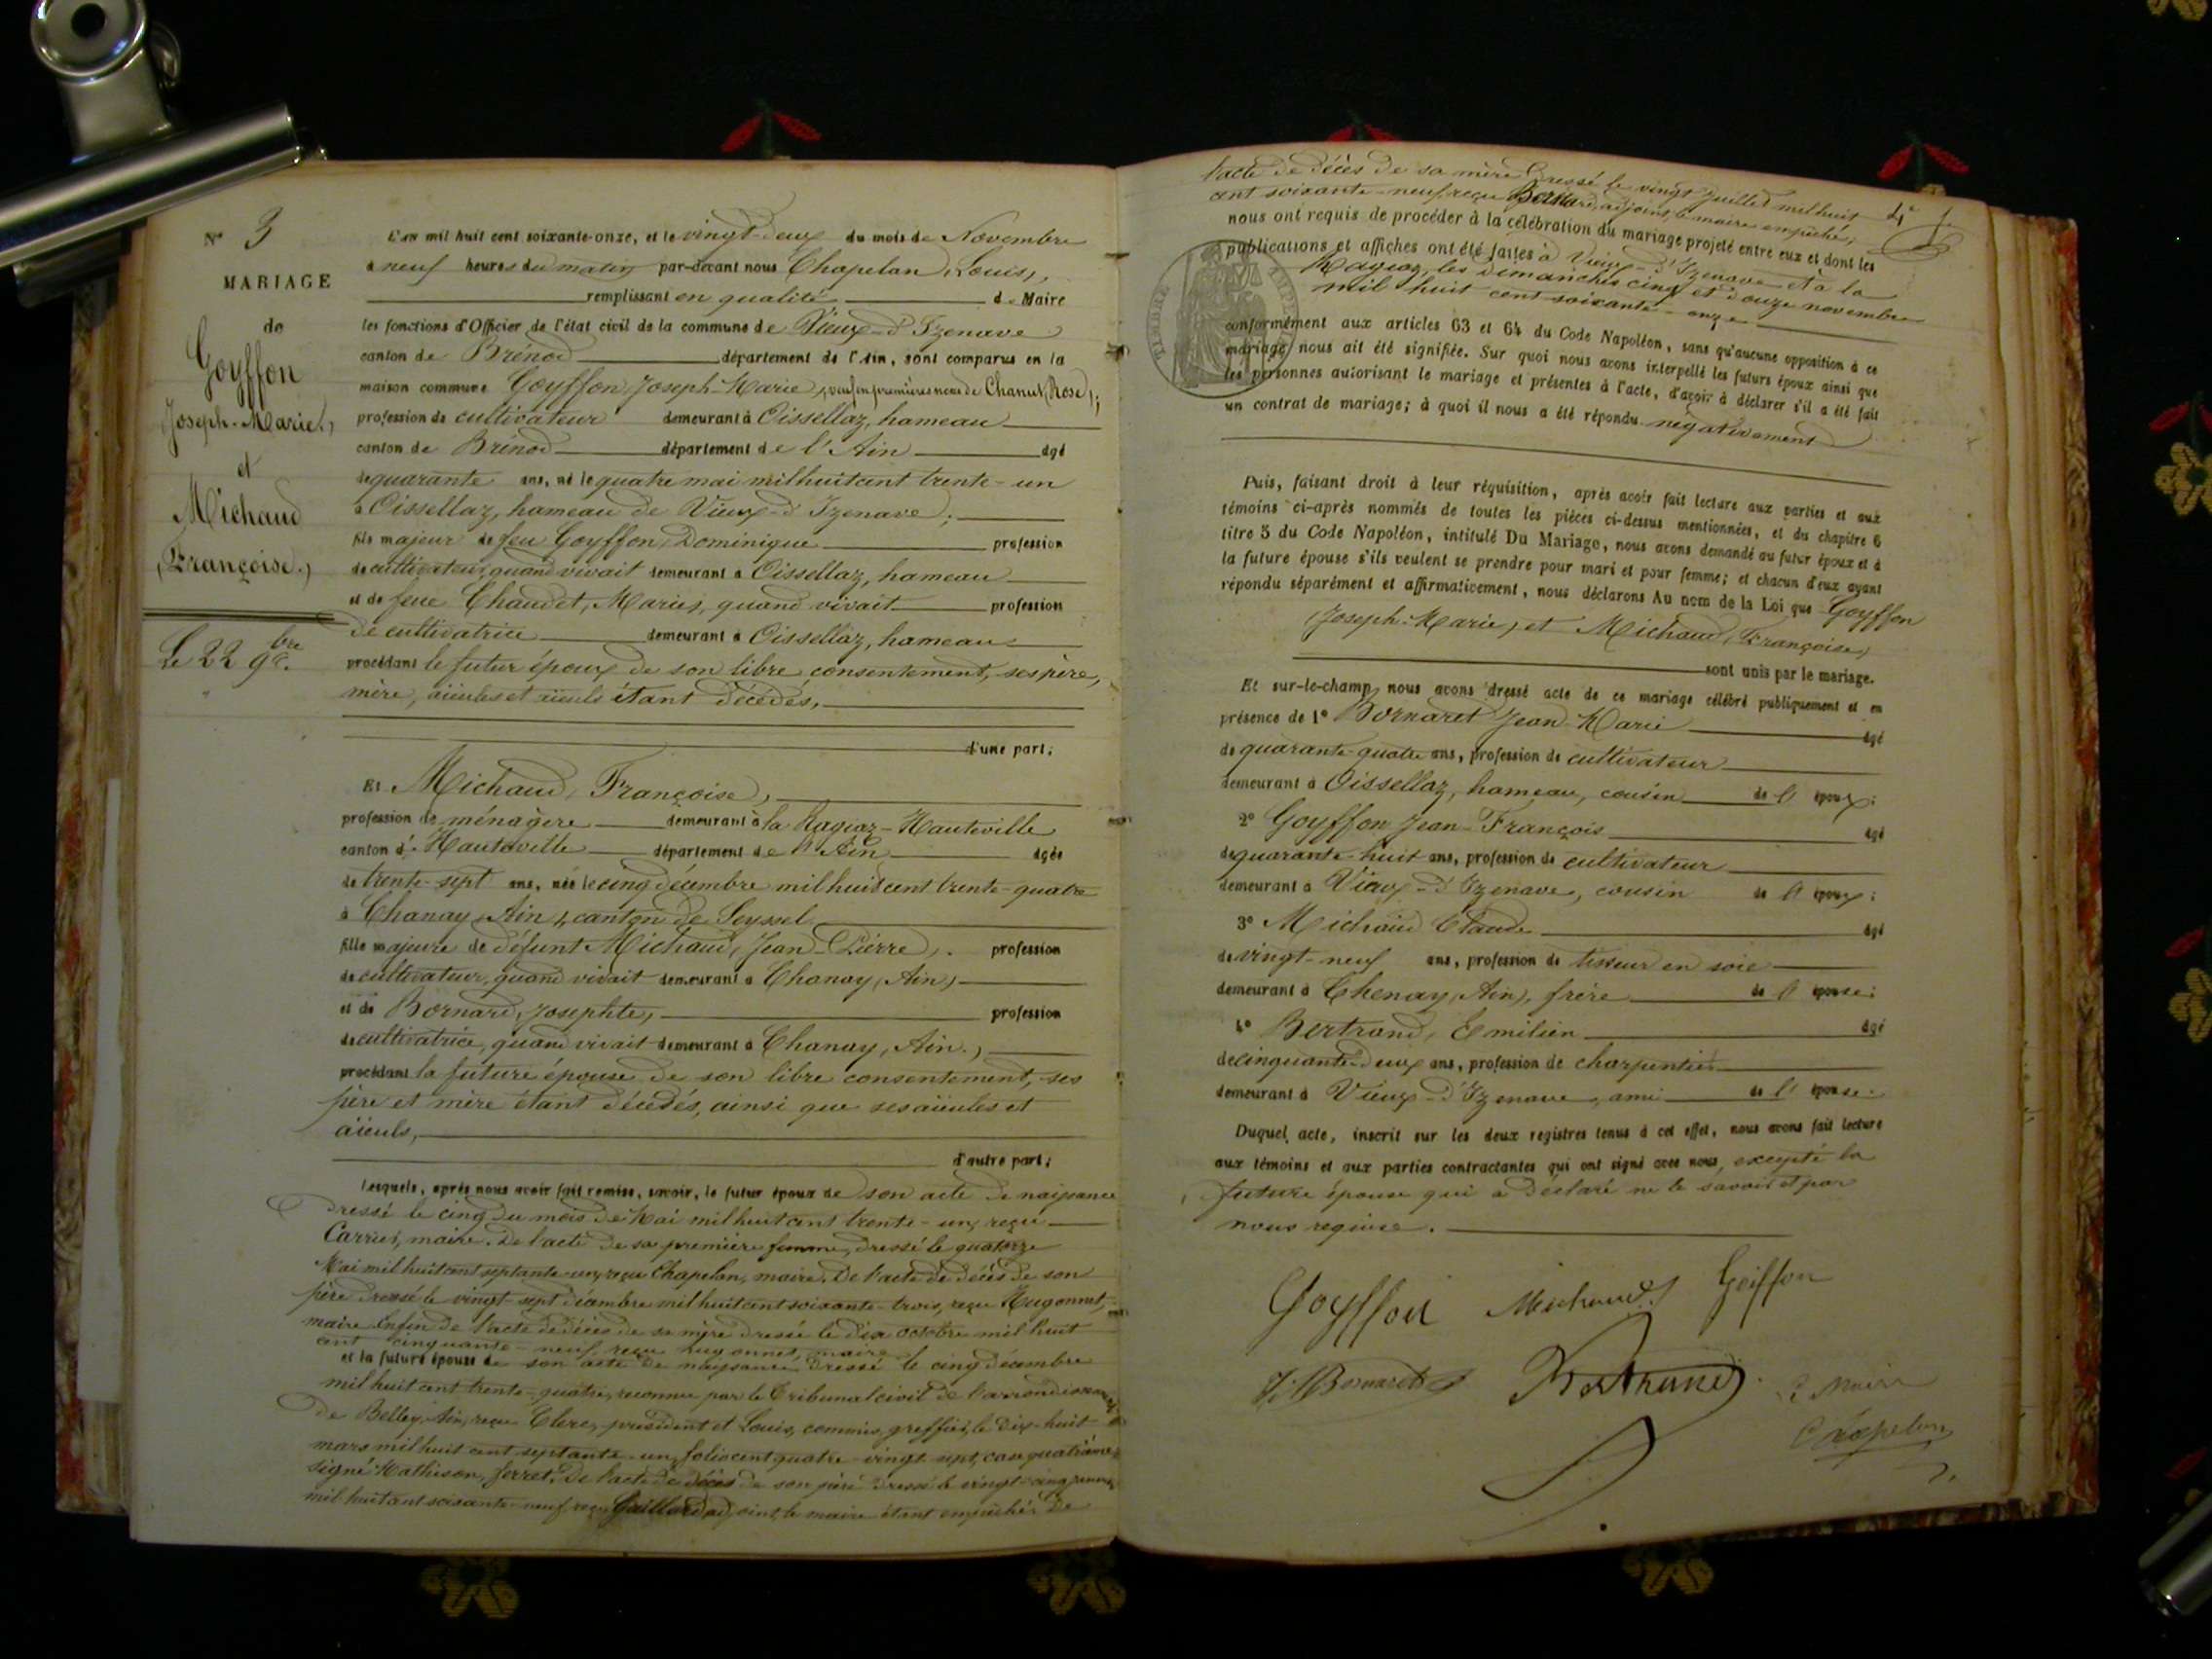 N° 3
MARIAGE
de
Goyffon
Joseph-Marie,
et
Michaud
(Françoise.)
Le 22 9bre.
L'an mil huit cent soixante-onze, et le vingt-deux du mois de Novembre
à neuf heures du matin par-devant nous Chapelan, Louis,
remplissant en qualité de Maire
les fonctions d'Officier de l'état civil de la commune de Vieux-d'Izenave
canton de Brénod département de l'Ain, sont comparus en la
maison commune Goyffon, Joseph-Marie, veuf en premières noces de Chanut (Rose);
profession de cultivateur demeurant à Oissellaz, hameau
canton de Brénod département de l'Ain âgé
de quarante ans, né le quatre mai mil huit cent trente-un
à Oissellaz, hameau de Vieux-d'Izenave;
fils majeur de feu Goyffon, Dominique profession
de cultivateur, quand vivait demeurant à Oissellaz, hameau
et de feue Chaudet, Marie, quand vivait profession
de cultivatrice demeurant à Oissellaz, hameau
procédant le futur époux de son libre consentement, ses père,
mère, aïeules et aïeuls étant décédés,
d'une part;
Et Michaud, Françoise,
profession de ménagère demeurant à la Ragiaz-Hauteville
canton d'Hauteville département de l'Ain âgée
de trente-sept ans, née le cinq décembre mil huit cent trente-quatre
à Chanay, Ain, canton de Seyssel
fille majeure de défunt Michaud, Jean-Pierre, profession
de cultivateur, quand vivait demeurant à Chanay, (Ain)
et de Bornard, Josephte, profession
de cultivatrice, quand vivait demeurant à Chanay, Ain.)
procédant la future épouse de son libre consentement, ses
père et mère étant décédés, ainsi que ses aïeules et
aïeuls,
d'autre part;
Lesquels, après nous avoir fait remise, savoir, le futur époux de son acte de naissance
dressé le cinq du mois de Mai mil huit cent trente-un, reçu
Carrier, maire. De l'acte de sa première femme, dressé le quatorze
Mai mil huit cent septante-un, reçu Chapelan, maire. De l'acte de décès de son
père dressé le vingt-sept décembre mil huit cent soixante-trois, reçu Hugonnet,
maire. Enfin de l'acte de décès de sa mère dressé le dix octobre mil huit
cent cinquante-neuf, reçu Hugonnet, maire
et la future épouse de son acte de naissance, dressé le cinq décembre
mil huit cent trente-quatre, reconnue par le Tribunal civil de l'arrondissement
De Belley, Ain, reçu Clerc, président et Louis, commis, greffier, le dix-huit
mars mil huit cent septante-un, folio cent quatre-vingt-sept, case quatrième
signé Mathieson, ferret. De l'acte de décès de son père dressé le vingt-cinq
mil huit cent soixante-neuf, reçu Gaillard, adjoint, le maire étant empêché. De
4e f.
l'acte de décès de sa mère dressé le vingt juillet mil huit
cent soixante-neuf, reçu Bernard, adjoint, le maire empêché,
nous ont requis de procéder à la célébration du mariage projeté entre eux et dont les
publications et affiches ont été faites à Vieux-d'Izenave et à la
Ragiaz, les dimanches cinq et douze novembre
mil huit cent soixante-onze
TIMBRE IMPÉ
conformément aux articles 63 et 64 du Code Napoléon, sans qu'aucune opposition à ce
mariage nous ait été signifiée. Sur quoi nous avons interpellé les futurs époux ainsi que
les personnes autorisant le mariage et présentes à l'acte, d'avoir à déclarer s'il a été fait
un contrat de mariage; à quoi il nous a été répondu négativement
Puis, faisant droit à leur réquisition, après avoir fait lecture aux parties et aux
témoins ci-après nommés de toutes les pièces ci-dessus mentionnées, et du chapitre 6
titre 5 du Code Napoléon, intitulé Du Mariage, nous avons demandé au futur époux et à
la future épouse s'ils veulent se prendre pour mari et pour femme; et chacun d'eux ayant
répondu séparément et affirmativement, nous déclarons Au nom de la Loi que Goyffon
(Joseph-Marie) et Michaud, (Françoise)
sont unis par le mariage.
Et sur-le-champ nous avons dressé acte de ce mariage célébré publiquement et en
présence de 1° Bornaret Jean-Marie âgé
de quarante-quatre ans, profession de cultivateur
demeurant à Oissellaz, hameau, cousin de l'époux;
2° Goyffon Jean-François âgé
de quarante-huit ans, profession de cultivateur
demeurant à Vieux-d'Izenave, cousin de l'époux;
3° Michaud Claude âgé
de vingt-neuf ans, profession de tisseur en soie
demeurant à Chenay, (Ain), frère de l'épouse;
4° Bertrand, Emilien âgé
de cinquante-deux ans, profession de charpentier
demeurant à Vieux-d'Izenave, ami de l'épouse.
Duquel acte, inscrit sur les deux registres tenus à cet effet, nous avons fait lecture
aux témoins et aux parties contractantes qui ont signé avec nous, excepté la
future épouse qui a déclaré ne le savoir et par
nous requise.
Goyffon Michaud Goiffon
Bornaret Bertrand Maire
Chapelan